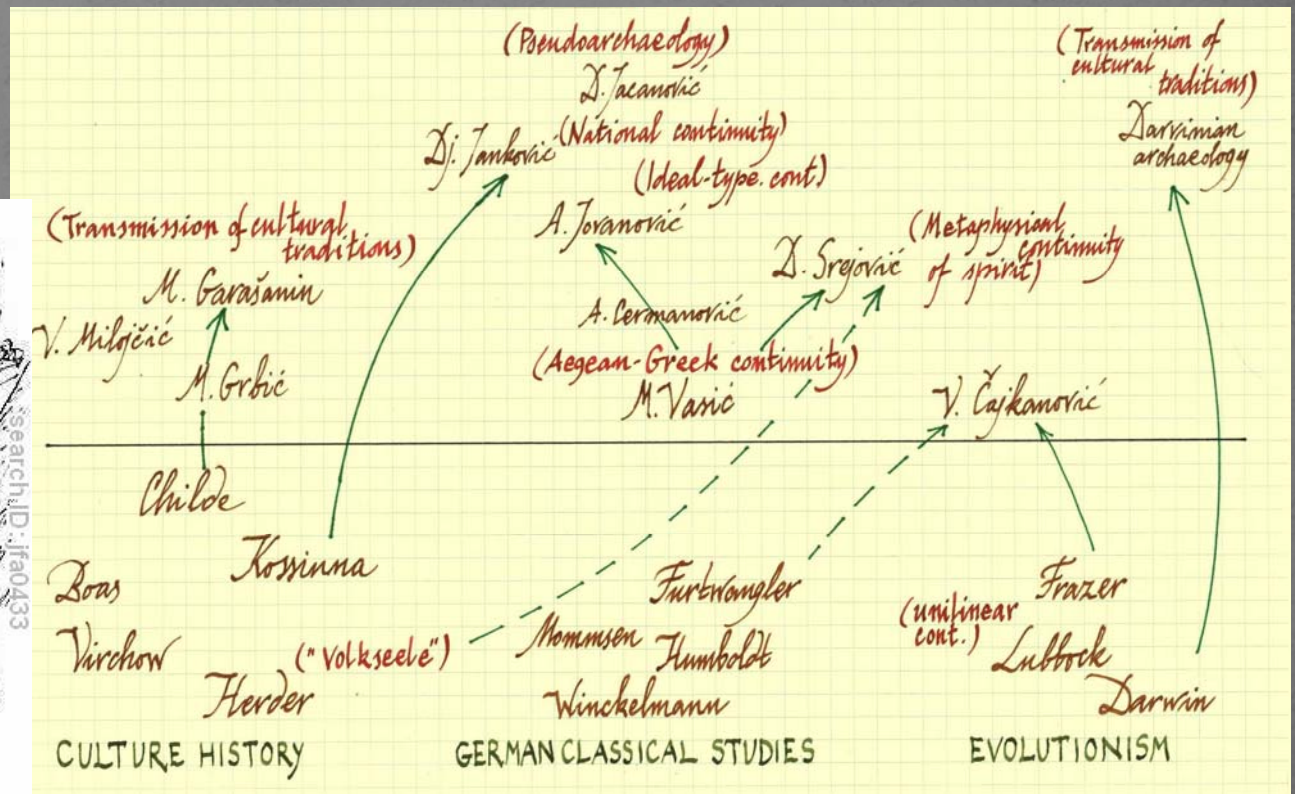 (Pseudoarchaeology)
D. Jacanović
(National continuity)
Dj. Janković
(Ideal-type. cont)
A. Jovanović
(Transmission of
cultural
traditions)
Darvinian
archaeology
(Transmission of cultural
traditions)
M. Garašanin
V. Milojčić
M. Grbić
D. Srejović
(Metaphysical
continuity
of spirit)
A. Cermanović
(Aegean-Greek continuity)
M. Vasić
V. Čajkanović
Childe
Kossinna
Boas
Virchow
("Volkseele")
Herder
Furtwangler
Mommsen
Humboldt
Winckelmann
Frazer
(unilinear
cont.)
Lubbock
Darwin
CULTURE HISTORY
GERMAN CLASSICAL STUDIES
EVOLUTIONISM
search.ID: jfa0433